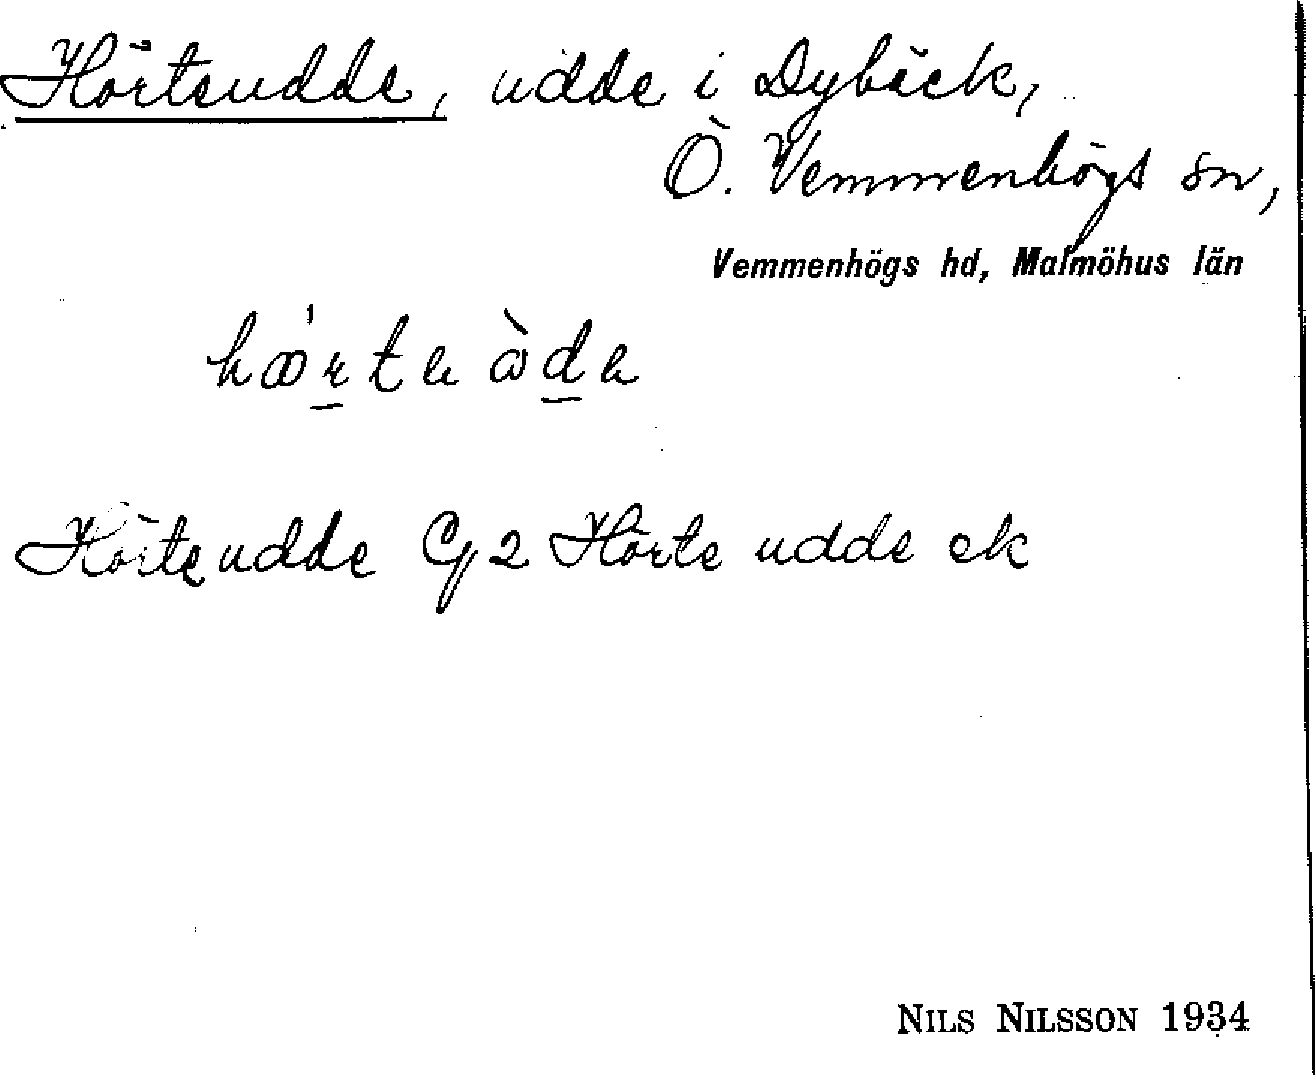 Hörteudde, udde i Dybäck,
Ö. Vemmenhögs sn,
Vemmenhögs hd, Malmöhus län
Hörteudde Gg 2 Hörte udde ek
NILS NILSSON 1934